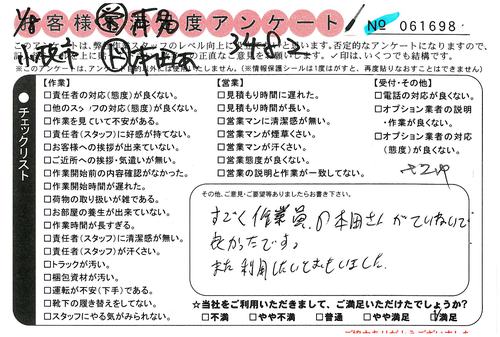 お客様満足度アンケート
No 061698
3483
このアンケートは、弊社作業スタッフのレベル向上に
否定的なアンケートになりますので、
正直なご意見をお願いします。✓印は、いくつでも結構です。
(※情報保護シールは1度はがすと、再度貼りなおすことはできません)
●チェックリスト
【作業】
□責任者の対応(態度)が良くない。
□他のスタッフの対応(態度)が良くない。
□作業を見ていて不安がある。
□責任者(スタッフ)に好感が持てない。
□お客様への挨拶が出来ていない。
□ご近所への挨拶・気遣いが無い。
□作業開始前の内容確認がなかった。
□作業開始時間が遅れた。
□荷物の取り扱いが雑である。
□お部屋の養生が出来ていない。
□作業時間が長すぎる。
□責任者(スタッフ)に清潔感が無い。
□責任者(スタッフ)が汗くさい。
□トラックが汚い。
□梱包資材が汚い。
□運転が不安(下手)である。
□靴下の履き替えをしてない。
□スタッフにやる気がみられない。
【営業】
□見積もり時間に遅れた。
□見積もり時間が長い。
□営業マンに清潔感が無い。
□営業マンが煙草くさい。
□営業マンが汗くさい。
□営業態度が良くない。
□営業の説明と作業が一致してない。
【受付・その他】
□電話の対応が良くない。
□オプション業者の説明
・作業が良くない。
□オプション業者の対応
(態度)が良くない。
その他、ご意見・ご要望等ありましたらお書き下さい。
すごく作業員の本田さんがていねいで
良かったです。
また利用したいとおもいました。
☆当社をご利用いただきまして、ご満足いただけたでしょうか?
□不満 □やや不満 □普通 □やや満足 □満足